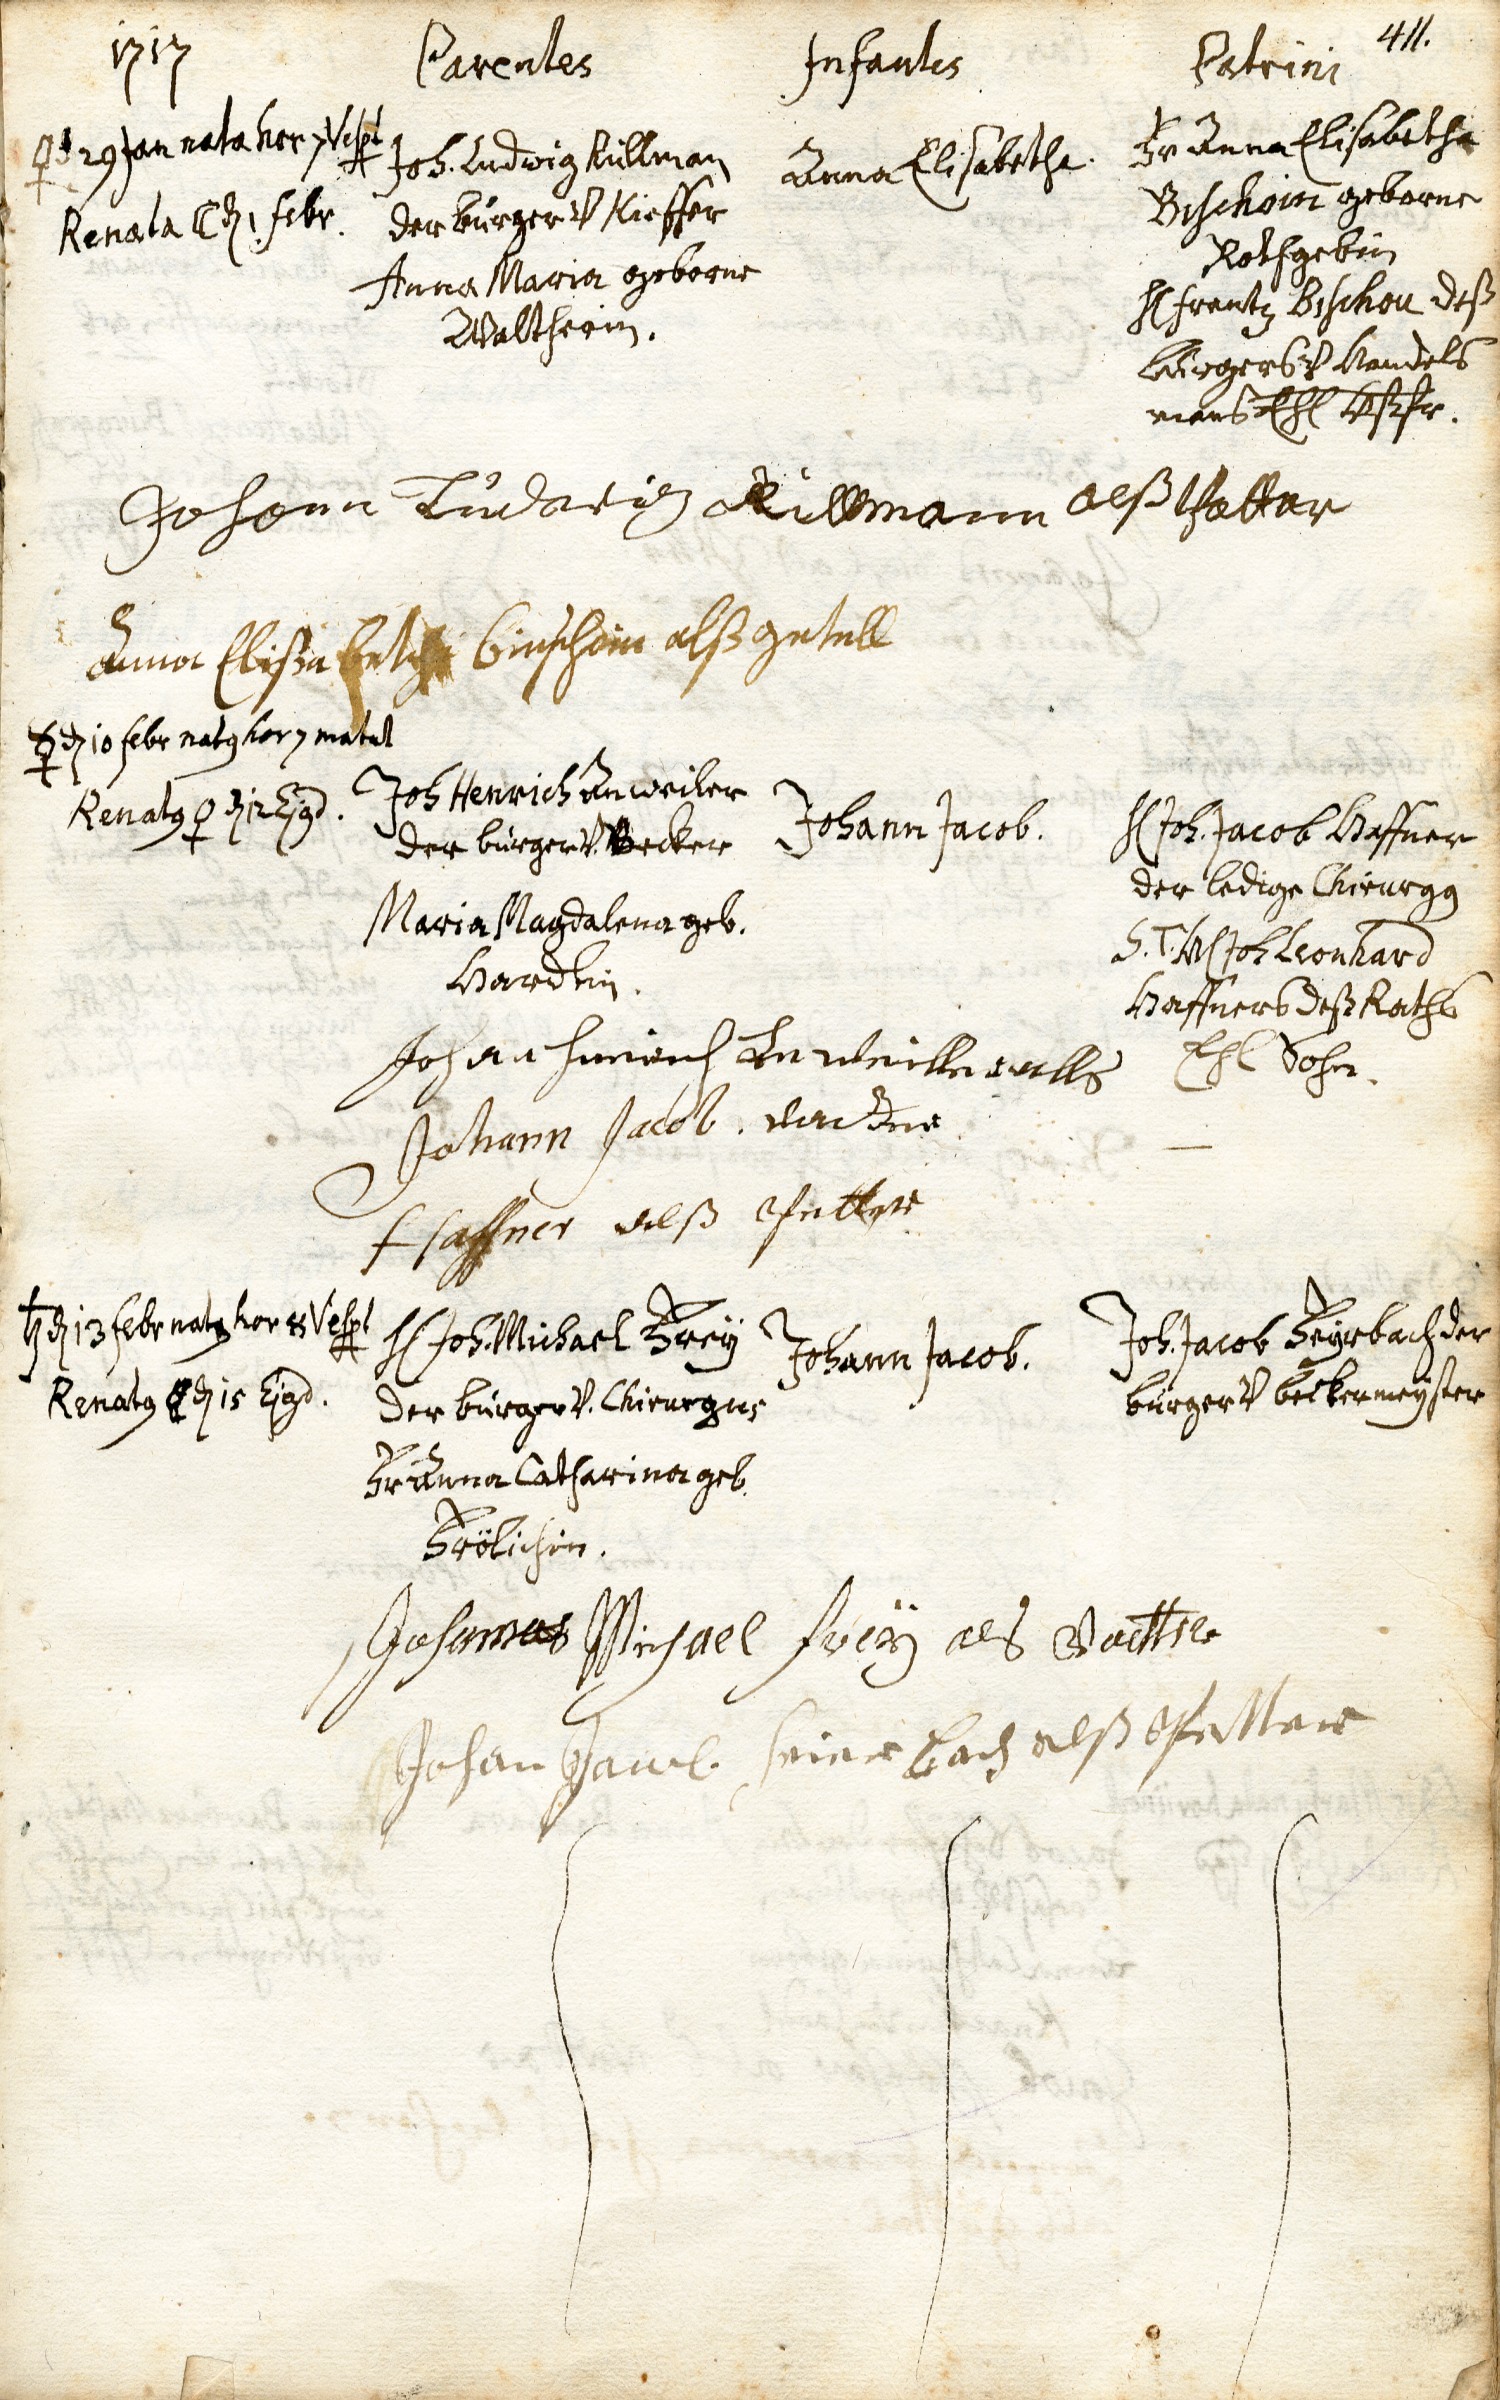 411.
1717 Parentes Infantes Patrini
♀ d 29 Jan nata hor 7 Vesp̃t
Renata ☾ dẽ 1 febr.
Joh. Ludwig Küllman
der burger V Kieffer
Anna Maria geborne
Waltherin.
Anna Elisabetha.
Fr Anna Elisabetha
Bischoin geborne
Rothgebin
H frantz Bischou deß
burgers V Handels
mans Ehl
Johann Ludwig Küllmann alß Vatter
Anna Elißabetha bischoin alß getell
dẽ 10 febr natg hor 7 matut
Renatg ♀ dẽ 12 Ejgd.
Joh Henrich Anweiler
der burger V. Becker
Maria Magdalena geb.
Hardtin.
Johann Jacob.
H Joh. Jacob Haffner
der ledige Chirurgg
S. T. H Joh Leonhard
Haffners deß Raths
Ehl Sohn.
Johan Henrich Anweiller alls
Vadter
Johann Jacob.
Haffner alß Petter
♄ dẽ 13 febr natg hor 8 Vesp̃t
Renatg ☾ dẽ 15 Ejgd.
H Joh. Michael Frey
der burger V. Chirurgus
Fr Anna Catharina geb.
Frölichin.
Johann Jacob.
Joh. Jacob Feyrbach der
burger V beckermeyster
Johannes Michael frey als Vatter
Johan Jacob feierbach alß Petter